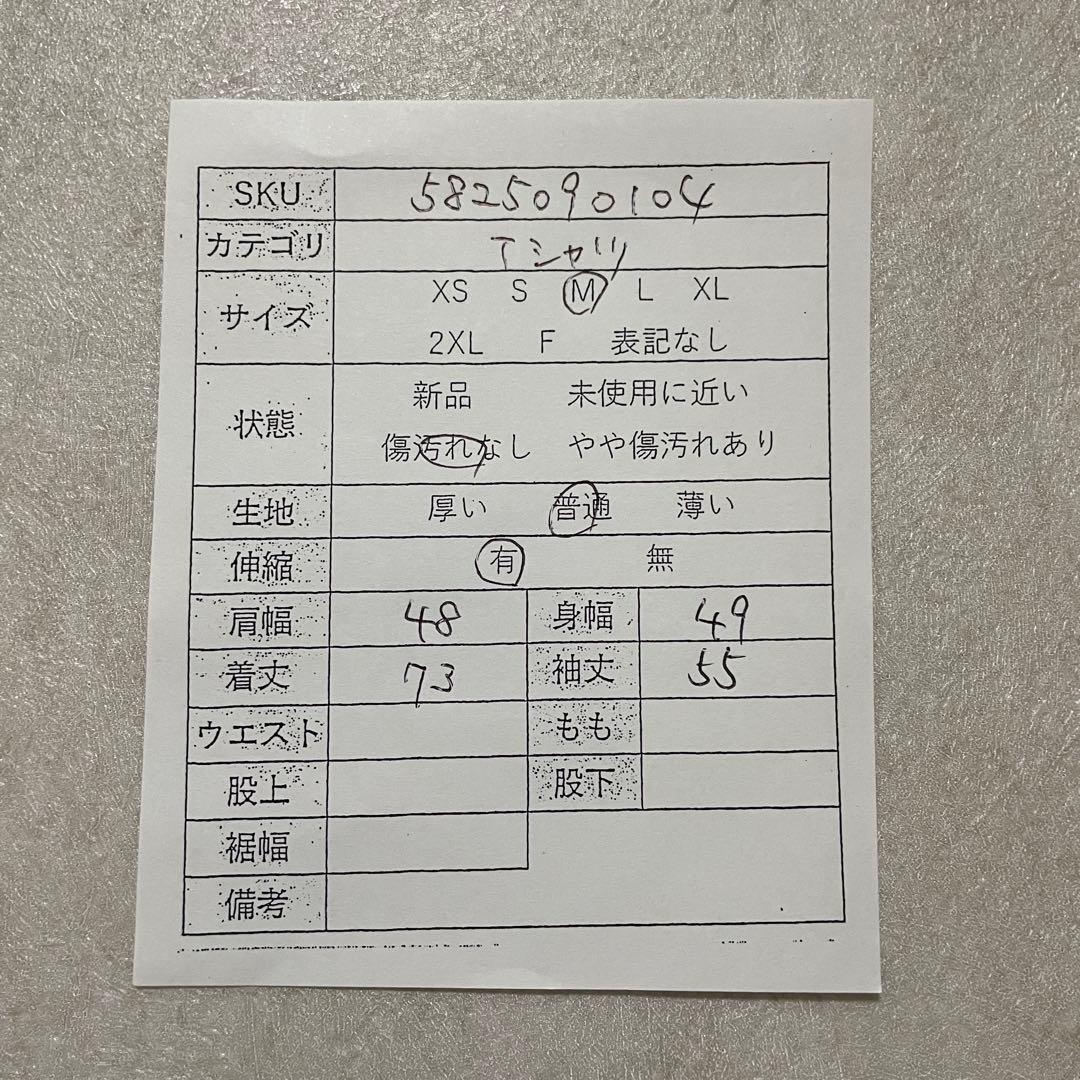 SKU 5825090104
カテゴリ Tシャツ
サイズ XS S M L XL
2XL F 表記なし
状態 新品 未使用に近い
傷汚れなし やや傷汚れあり
生地 厚い 普通 薄い
伸縮 有 無
肩幅 48 身幅 49
着丈 73 袖丈 55
ウエスト もも
股上 股下
裾幅
備考